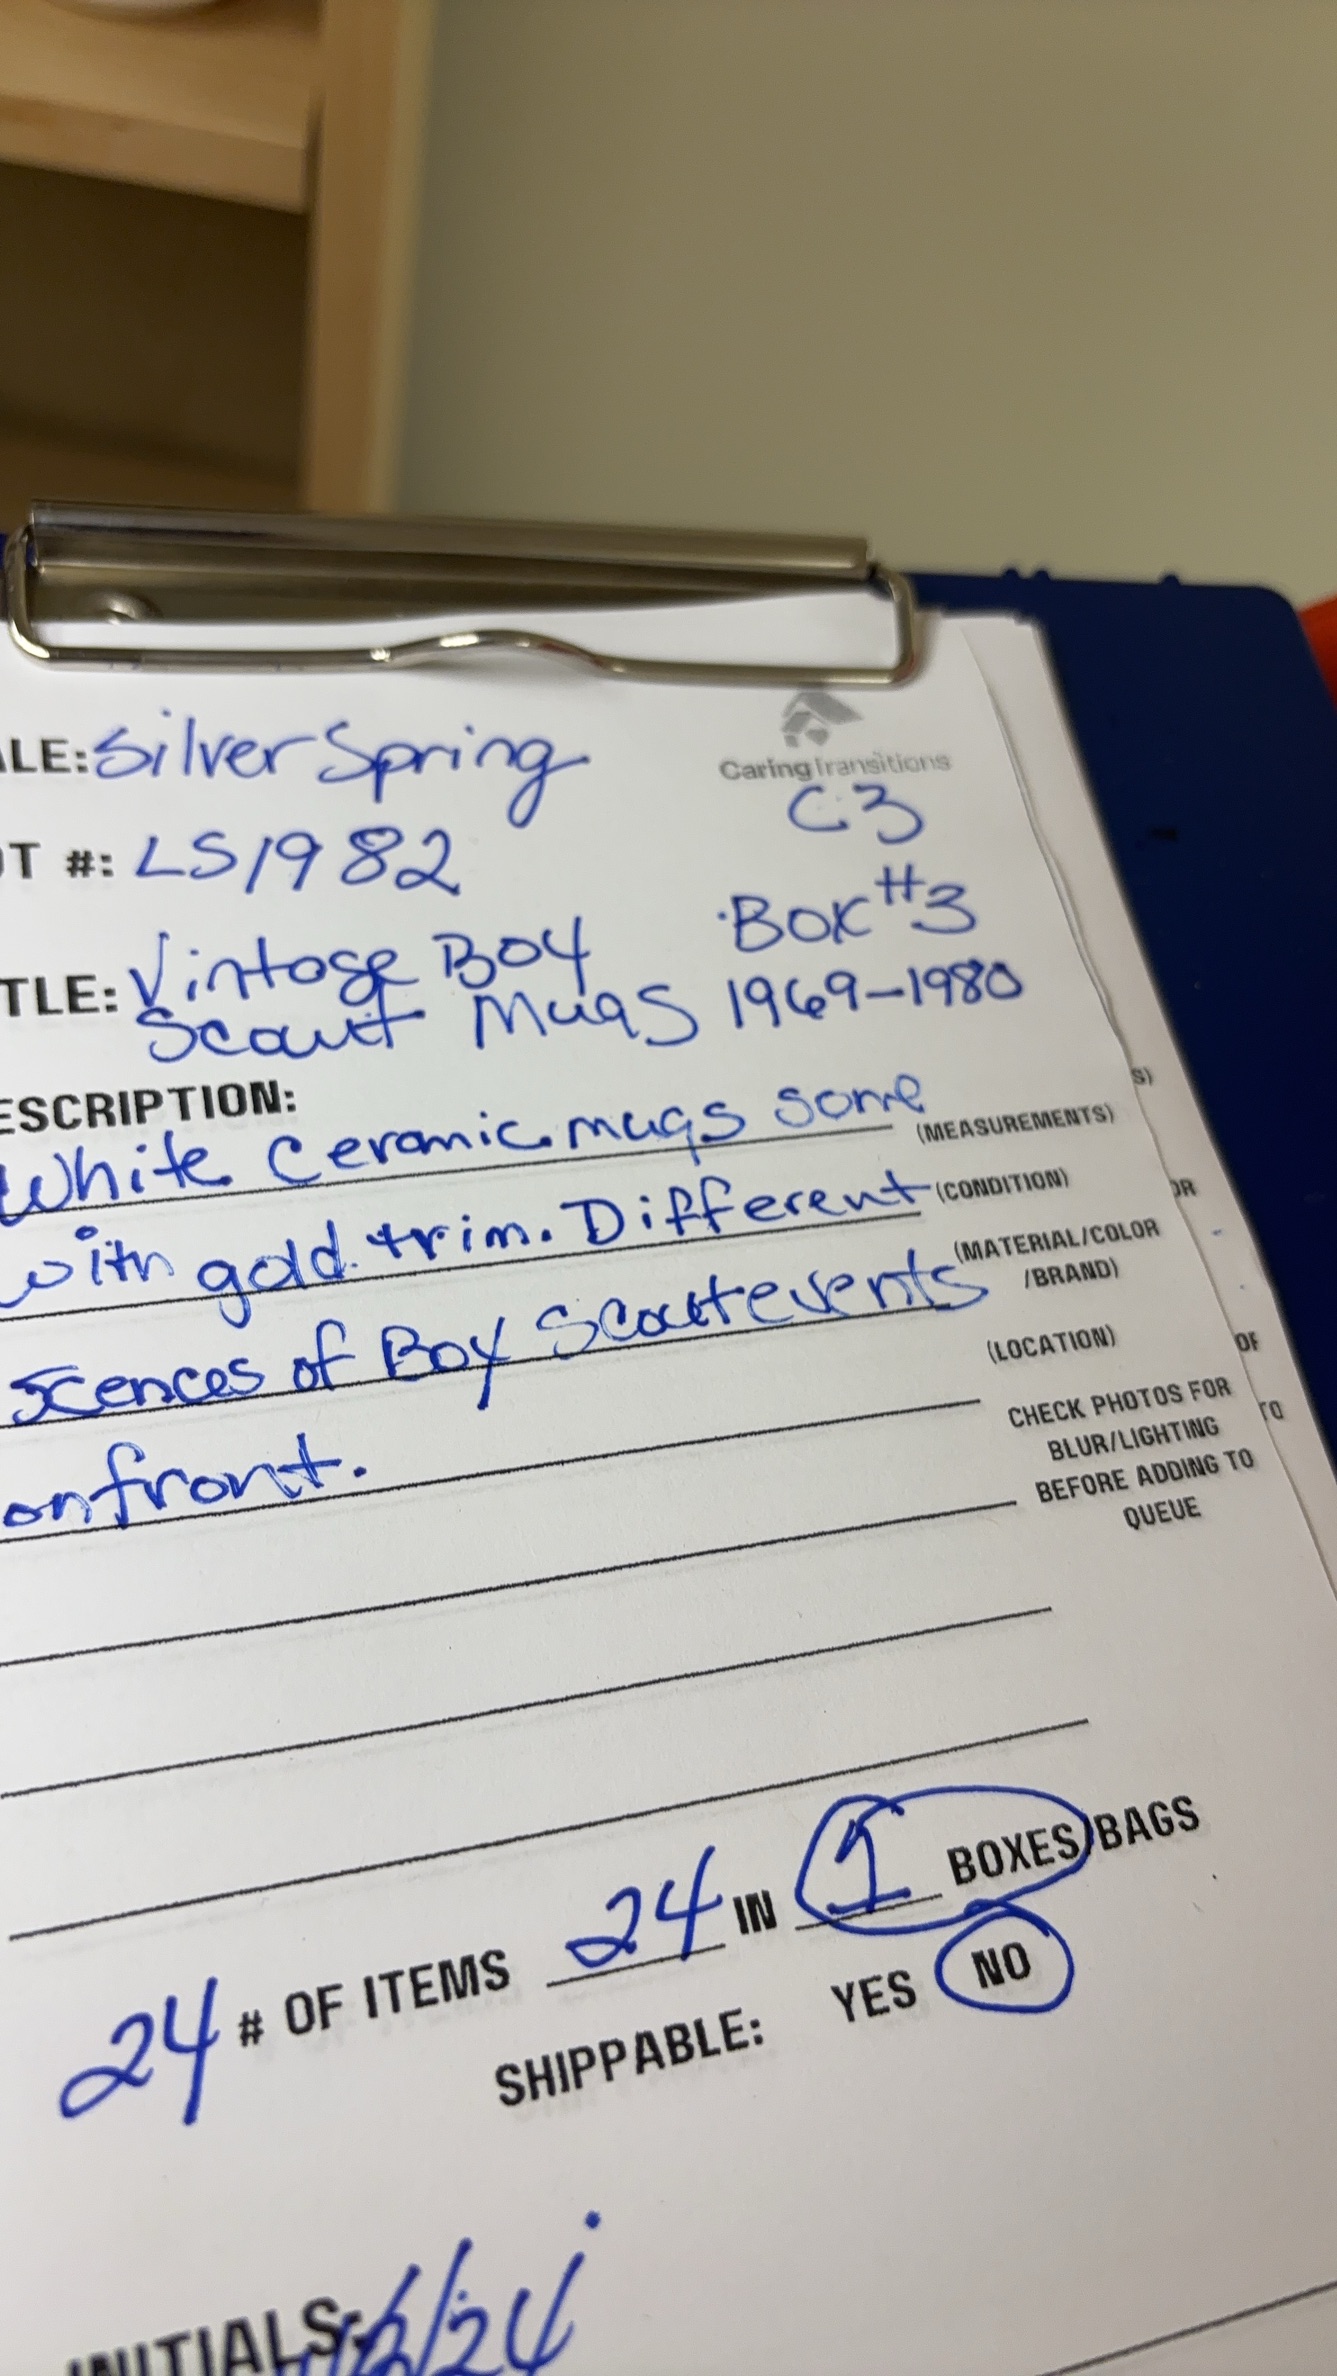 ALE: Silver Spring
CaringTransitions
C3
OT #: LS1982
Box #3
TITLE: Vintage Boy
Scout Mugs 1969-1980
ESCRIPTION:
S)
White Ceramic mugs some
(MEASUREMENTS)
with gold trim. Different
(CONDITION)
OR
(MATERIAL/COLOR
/BRAND)
Scences of Boy Scout events
(LOCATION)
OF
on front.
CHECK PHOTOS FOR
TO
BLUR/LIGHTING
BEFORE ADDING TO
QUEUE
24 # OF ITEMS 24 IN 1 BOXES/BAGS
SHIPPABLE: YES NO
INITIALS: